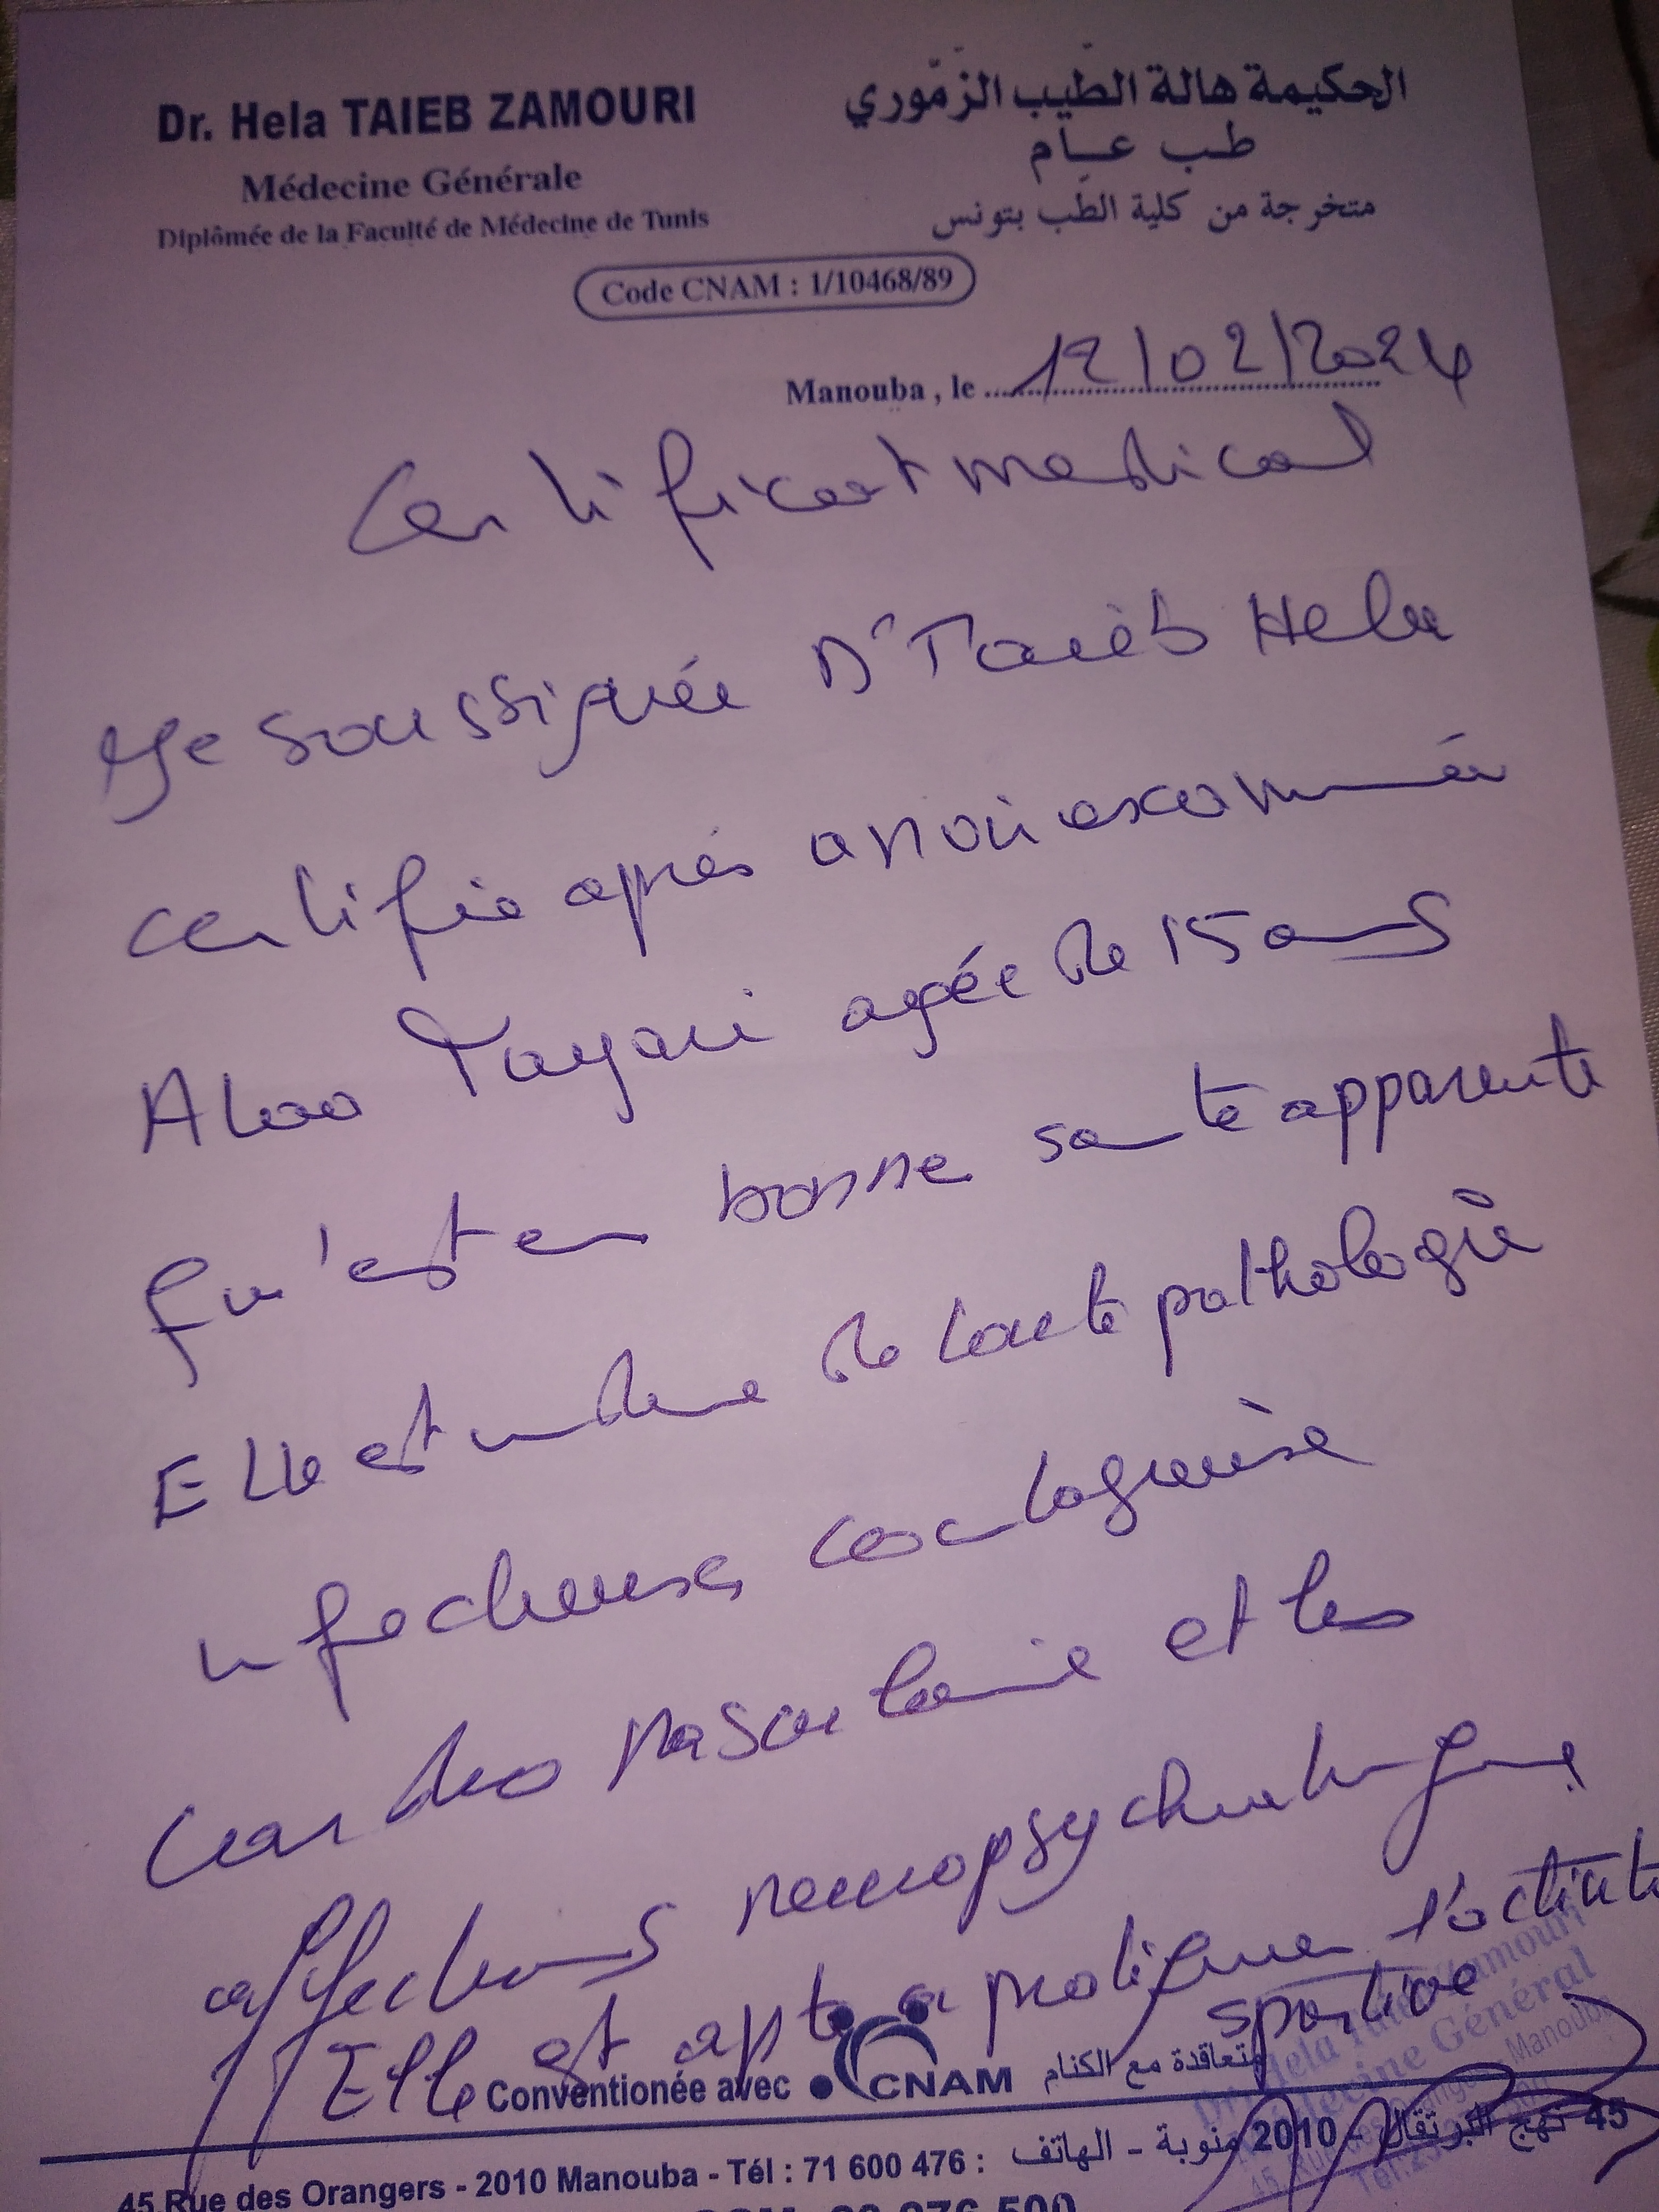 Dr. Hela TAIEB ZAMOURI
Médecine Générale
Diplômée de la Faculté de Médecine de Tunis
الحكيمة هالة الطيب الزّموري
طب عام
متخرجة من كلية الطب بتونس
Code CNAM : 1/10468/89
Manouba , le 12/02/2024
Certificat medical
Je soussignée Dr Taieb Hela
certifie après avoir examiné
Alaa Tayari agée de 15 ans
qu'est en bonne santé apparente
Elle est indemne de toute pathologie
infectieuse, contagieuse
cardio vasculaire et les
affections neuropsychiatriques
Elle est apte à pratiquer l'activité
sportive
Conventionée avec CNAM متعاقدة مع الكنام
45 نهج البرتقال - 2010 منوبة - الهاتف
45 Rue des Orangers - 2010 Manouba - Tél : 71 600 476 :